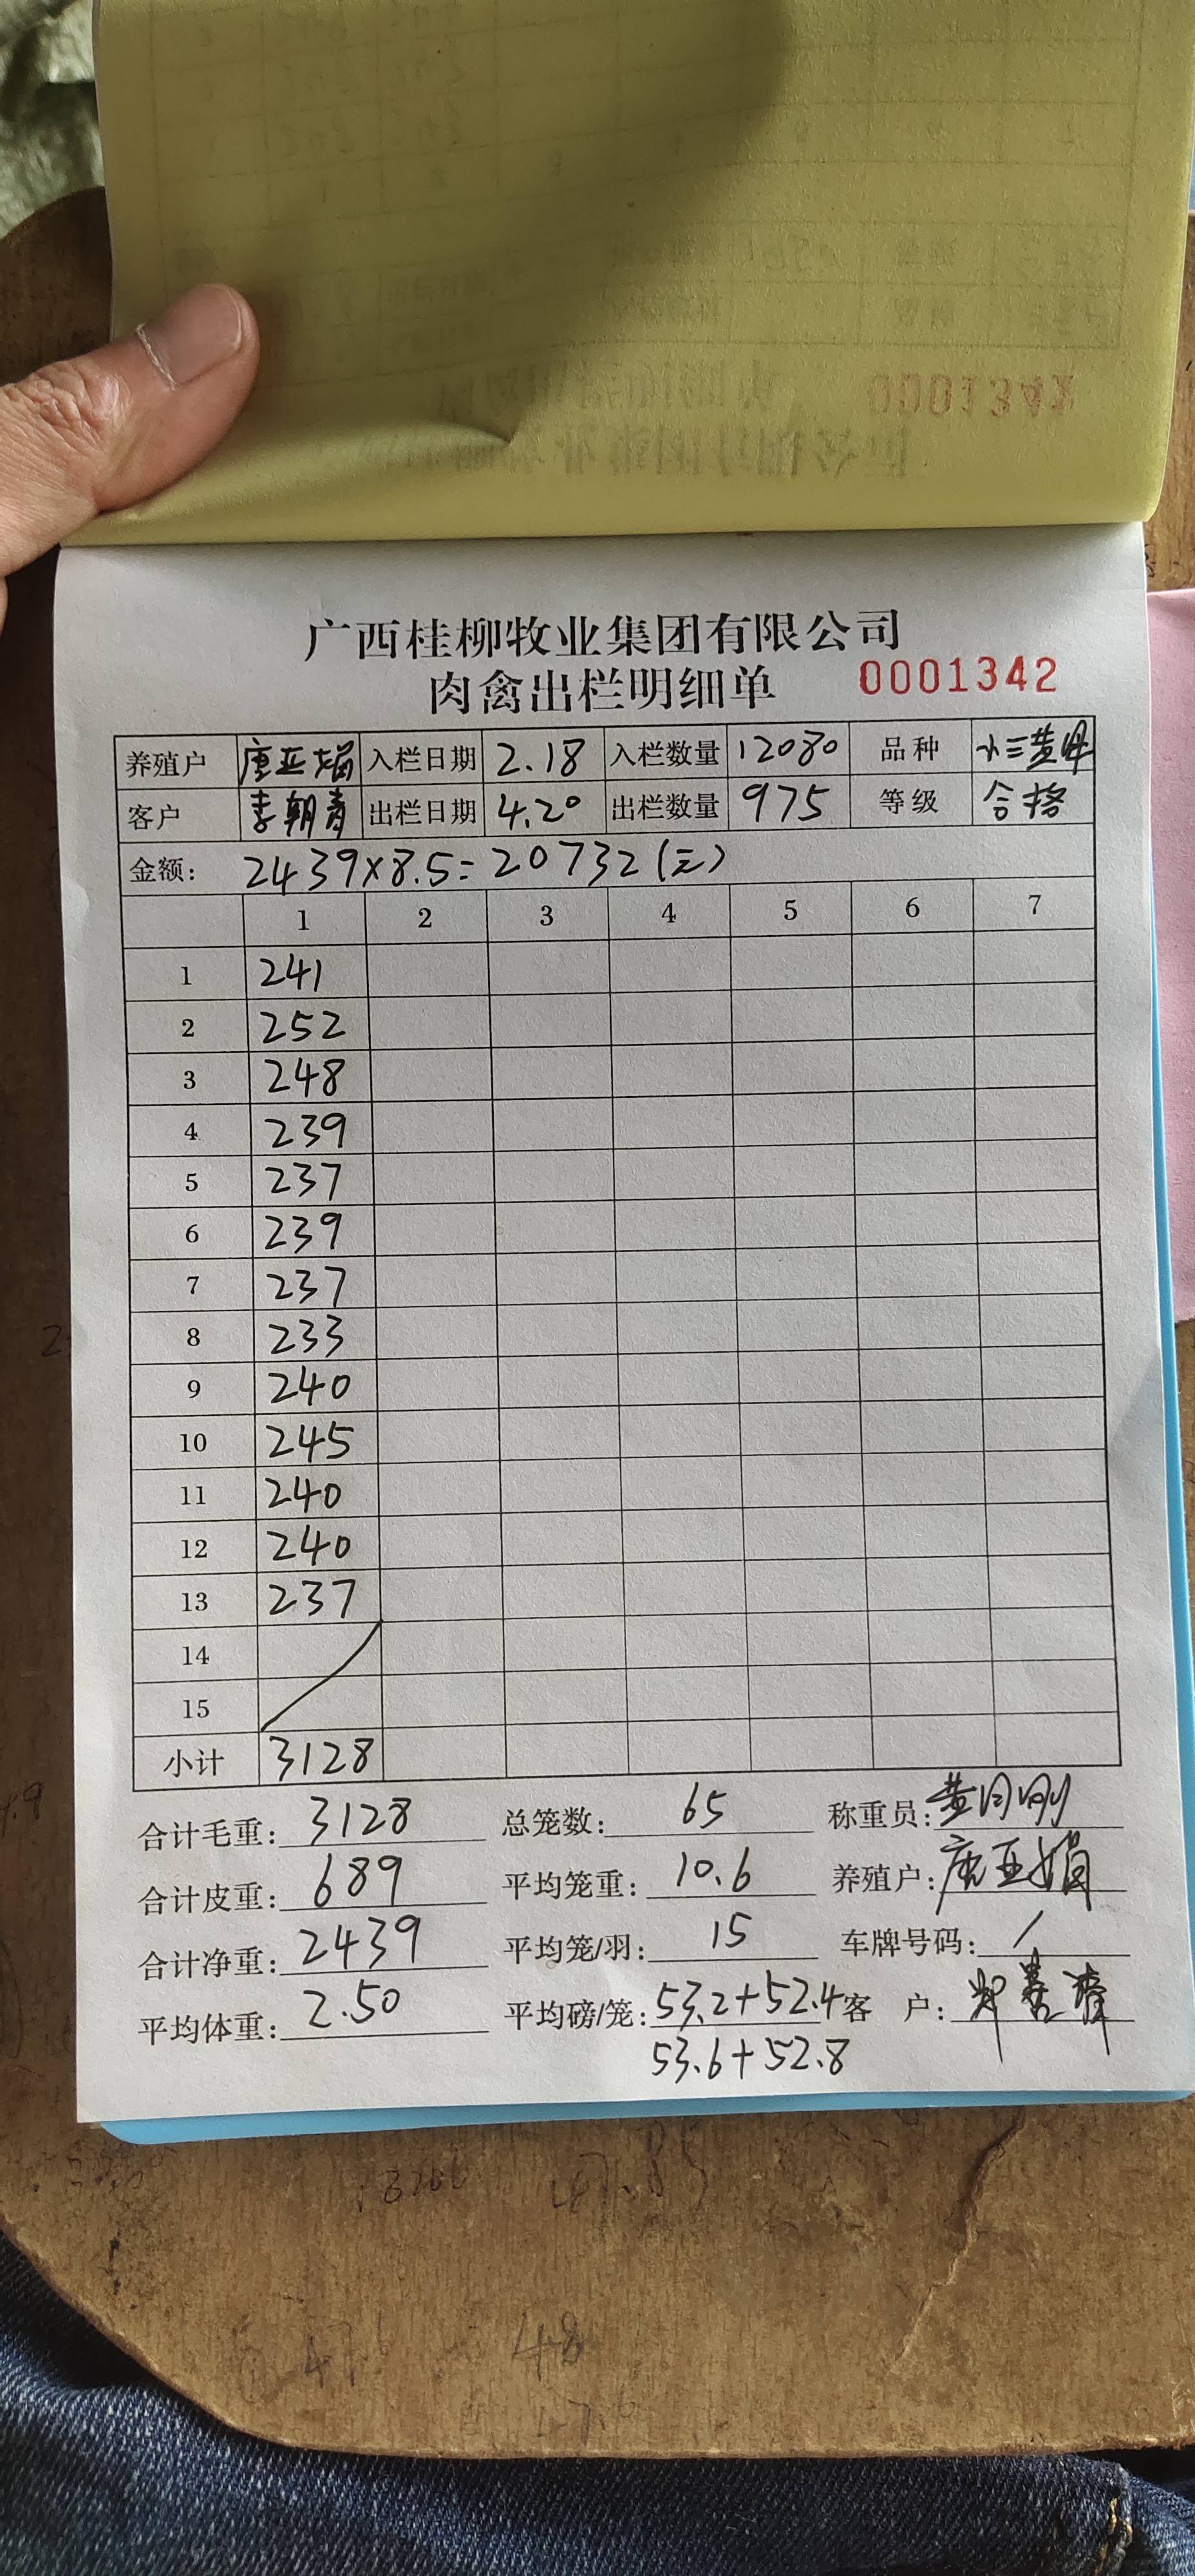 广西桂柳牧业集团有限公司
肉禽出栏明细单 0001342
养殖户 唐亚娟 入栏日期 2.18 入栏数量 12080 品种 小三黄
客户 李朝青 出栏日期 4.20 出栏数量 975 等级 合格
金额: 2439×8.5=20732(元)
1 2 3 4 5 6 7
1 241
2 252
3 248
4 239
5 237
6 239
7 237
8 233
9 240
10 245
11 240
12 240
13 237
14
15
小计 3128
合计毛重: 3128 总笼数: 65 称重员: 黄月刚
合计皮重: 689 平均笼重: 10.6 养殖户: 唐亚娟
合计净重: 2439 平均笼/羽: 15 车牌号码: /
平均体重: 2.50 平均磅/笼: 53.2+52.4 客 户:
53.6+52.8